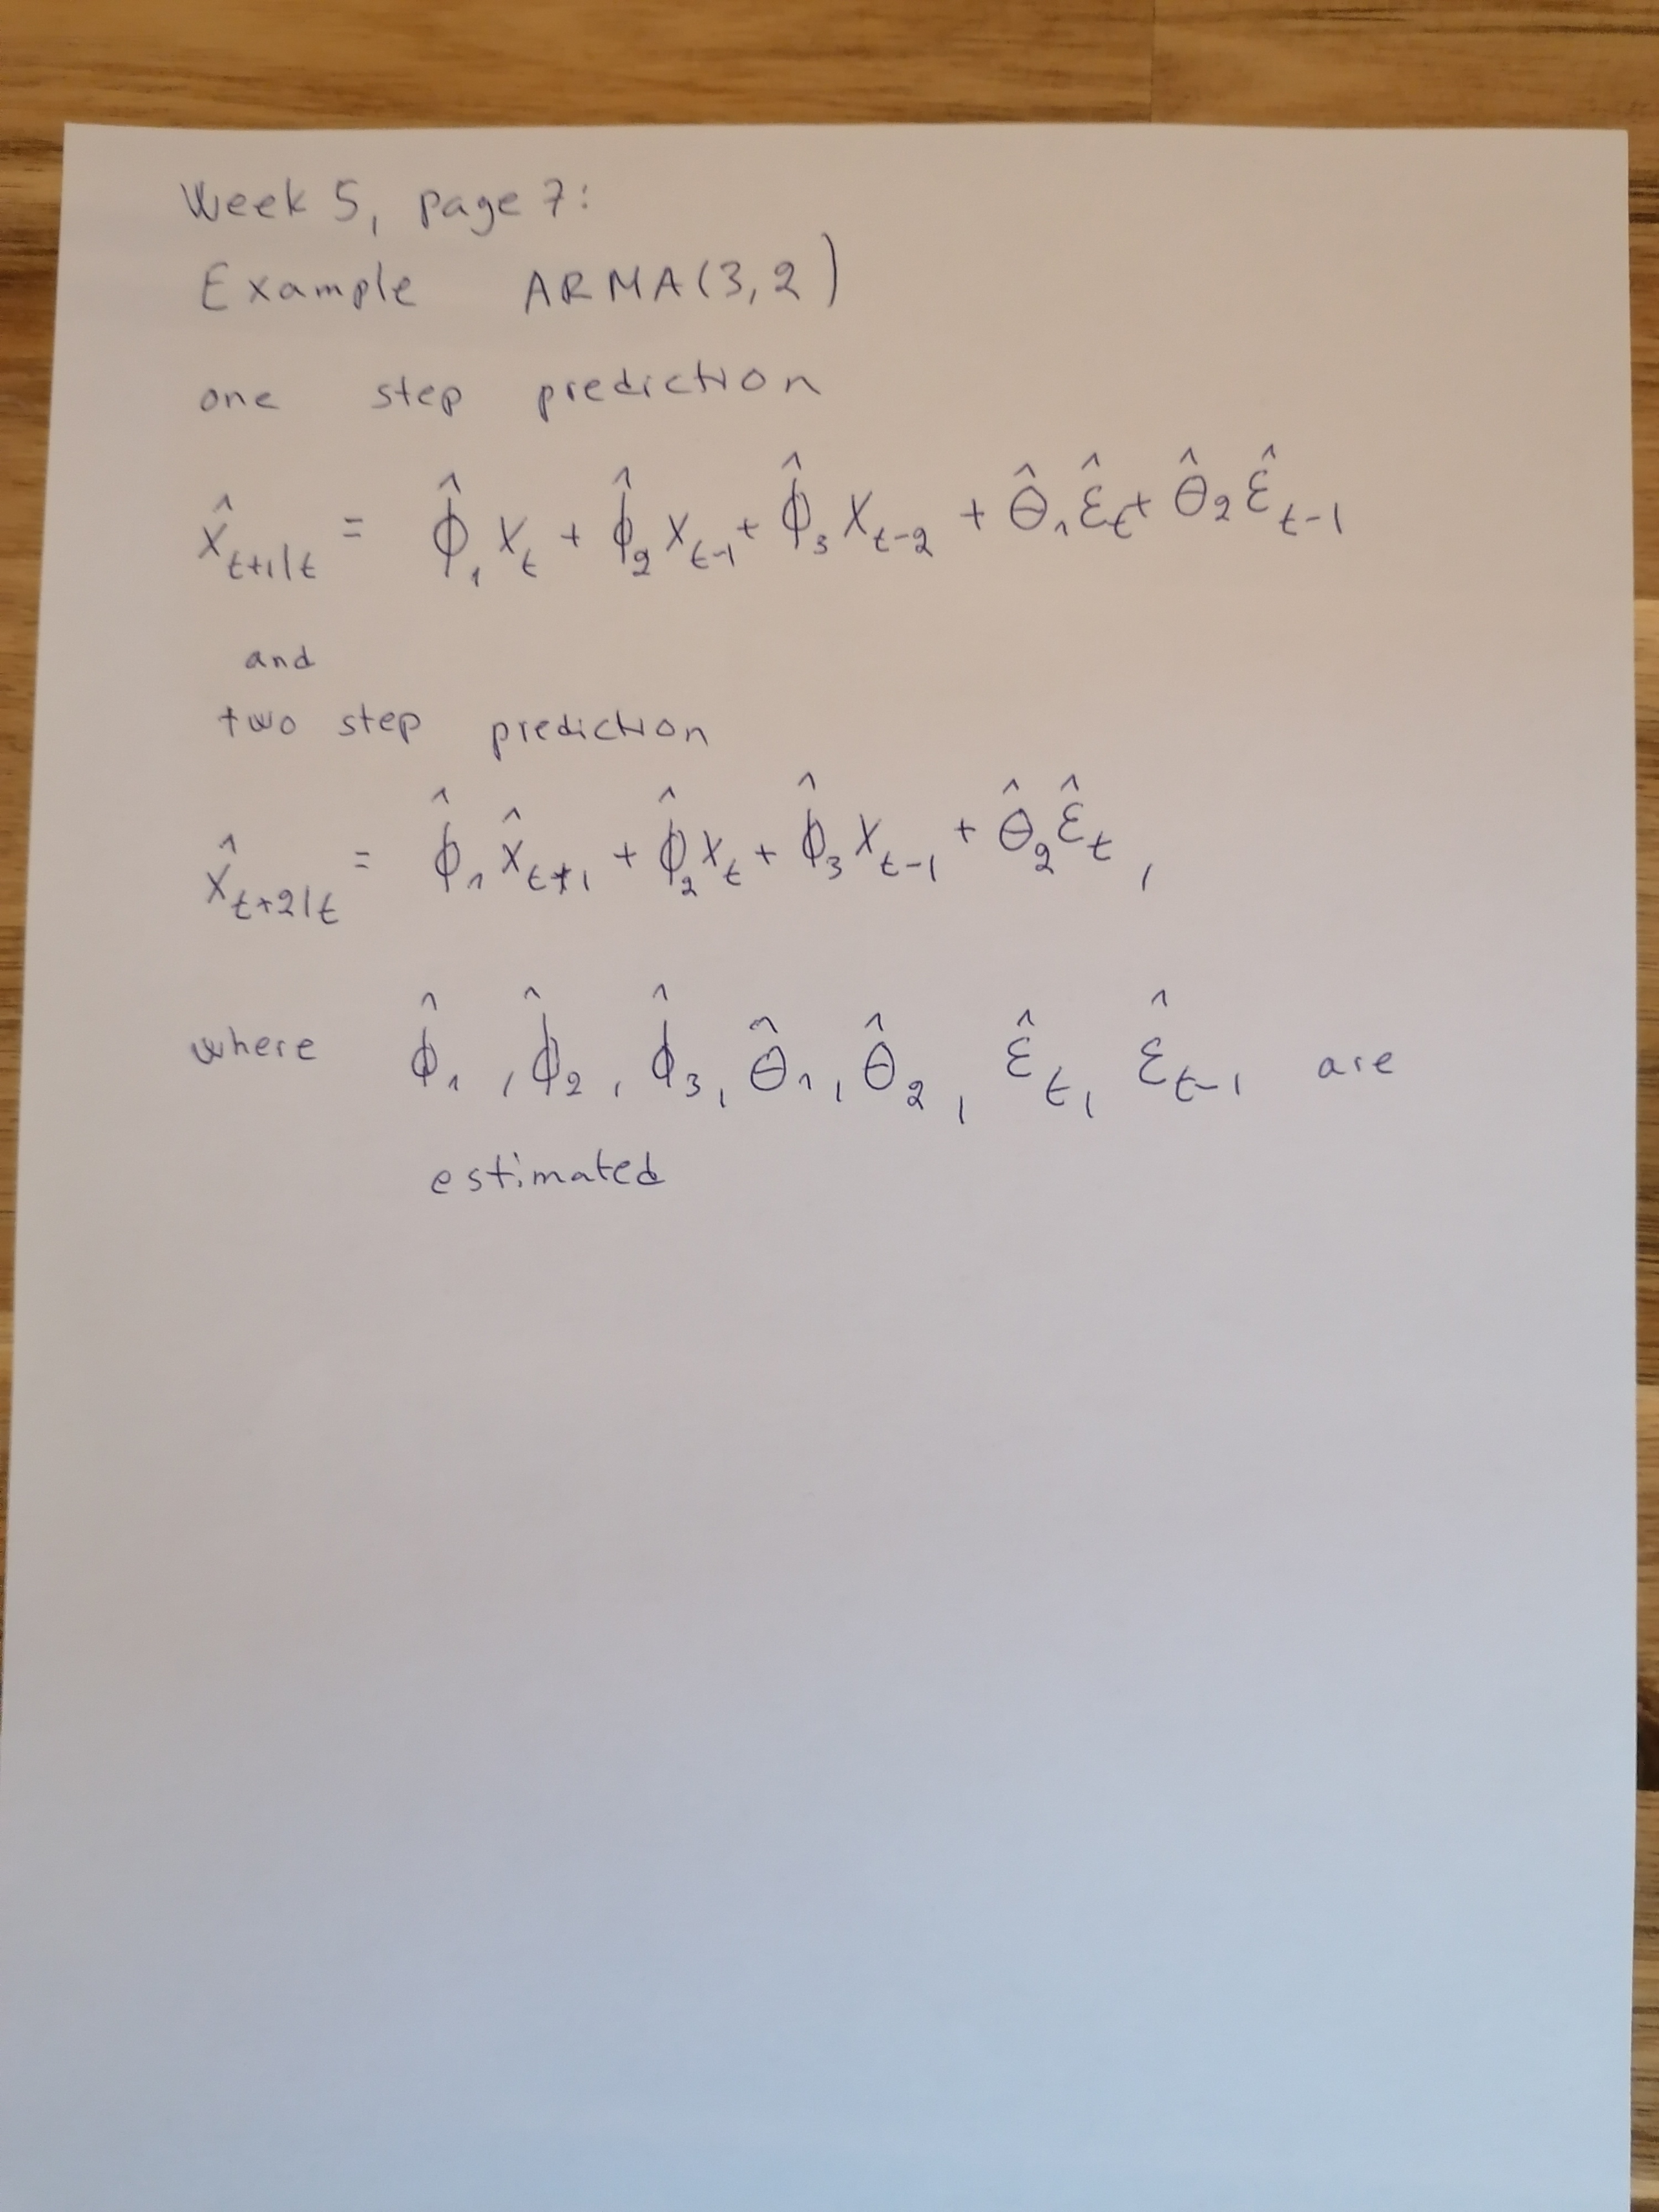 Week 5, page 7:
Example ARMA(3,2)
one step prediction
x̂_{t+1|t} = ϕ̂_1 x_t + ϕ̂_2 x_{t-1} + ϕ̂_3 x_{t-2} + θ̂_1 ε̂_t + θ̂_2 ε̂_{t-1}
and
two step prediction
x̂_{t+2|t} = ϕ̂_1 x̂_{t+1} + ϕ̂_2 x_t + ϕ̂_3 x_{t-1} + θ̂_2 ε̂_t ,
where ϕ̂_1 , ϕ̂_2 , ϕ̂_3 , θ̂_1 , θ̂_2 , ε̂_t , ε̂_{t-1} are
estimated